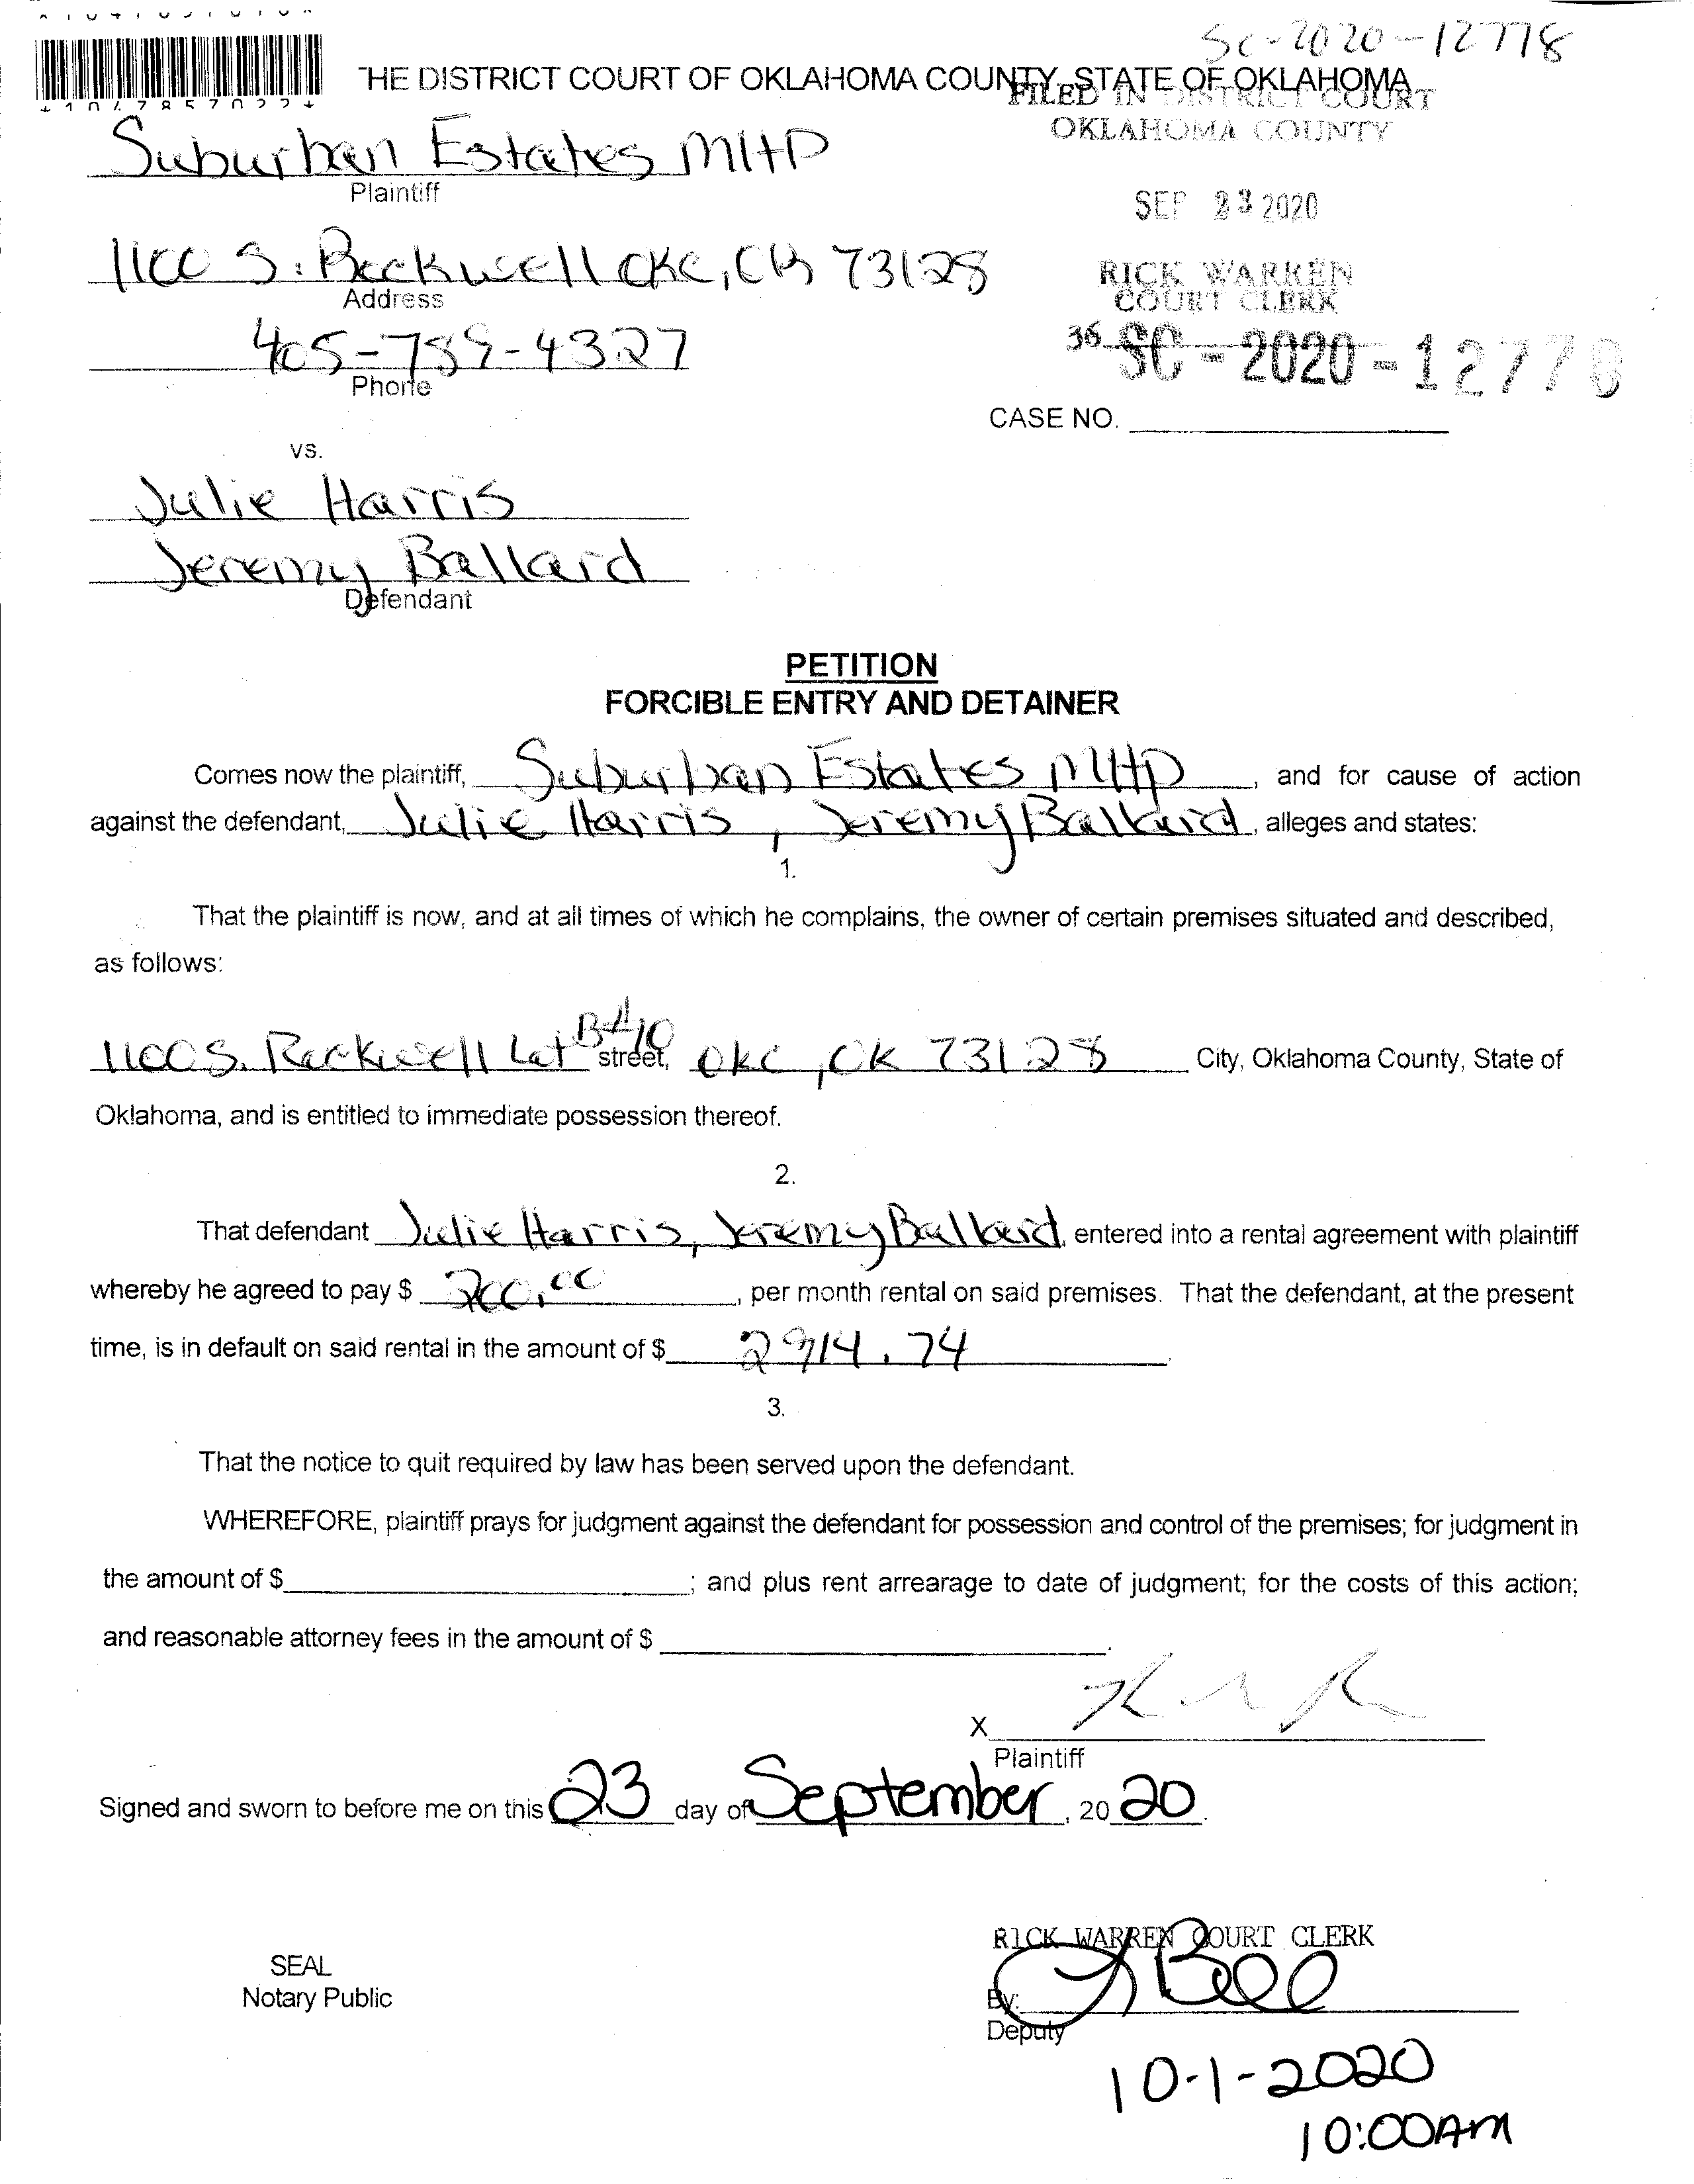 SC-2020-12778
THE DISTRICT COURT OF OKLAHOMA COUNTY, STATE OF OKLAHOMA
FILED IN DISTRICT COURT
OKLAHOMA COUNTY
Suburban Estates MHP
Plaintiff
SEP 23 2020
1100 S. Rockwell OKC, OK 73128
Address
RICK WARREN
COURT CLERK
405-789-4327
Phone
36
SC-2020-12778
CASE NO.
vs.
Julie Harris
Jeremy Ballard
Defendant
PETITION
FORCIBLE ENTRY AND DETAINER
Comes now the plaintiff, Suburban Estates MHP, and for cause of action
against the defendant, Julie Harris, Jeremy Ballard, alleges and states:
1.
That the plaintiff is now, and at all times of which he complains, the owner of certain premises situated and described,
as follows:
1100 S. Rockwell Lot B#10 street, OKC, OK 73128 City, Oklahoma County, State of
Oklahoma, and is entitled to immediate possession thereof.
2.
That defendant Julie Harris, Jeremy Ballard, entered into a rental agreement with plaintiff
whereby he agreed to pay $ , per month rental on said premises. That the defendant, at the present
time, is in default on said rental in the amount of $ 2914.74
3.
That the notice to quit required by law has been served upon the defendant.
WHEREFORE, plaintiff prays for judgment against the defendant for possession and control of the premises; for judgment in
the amount of $ ; and plus rent arrearage to date of judgment; for the costs of this action;
and reasonable attorney fees in the amount of $ .
X
Plaintiff
Signed and sworn to before me on this 23 day of September, 20 20.
RICK WARREN COURT CLERK
SEAL
Notary Public
By:
Deputy
10-1-2020
10:00AM